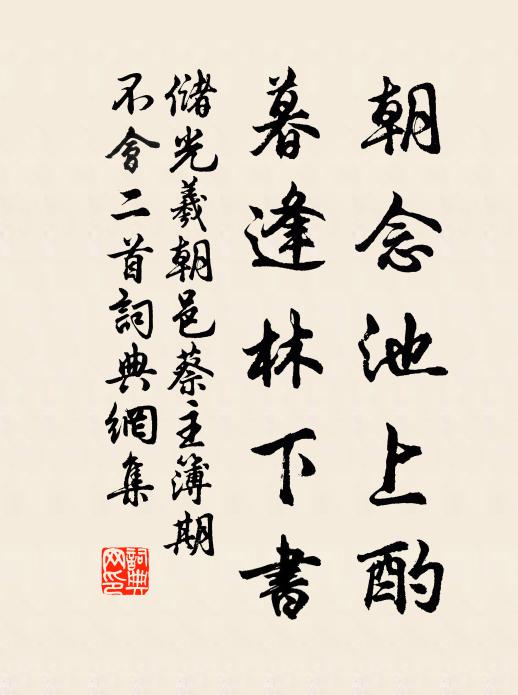 朝念池上酌
暮逢林下書
儲光羲朝邑蔡主簿期
不會二首詞典網集
詞典
网印